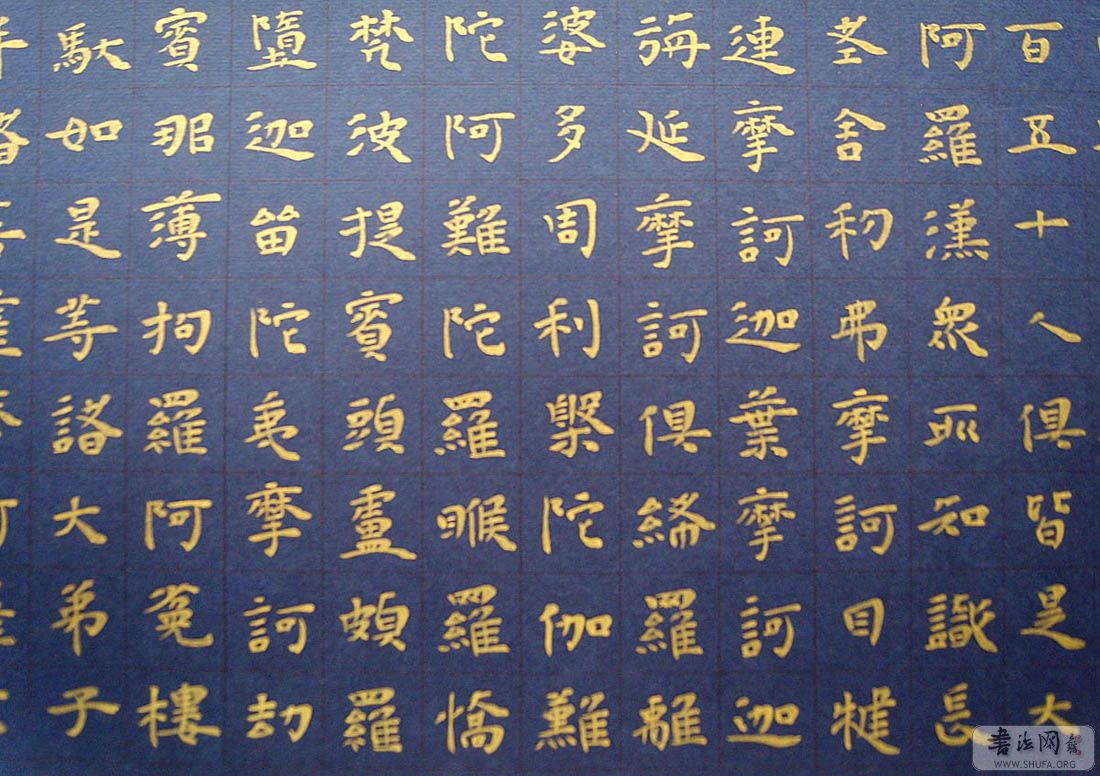 百五十人俱皆是大
阿羅漢眾所知識長
老舍利弗摩訶目犍
連摩訶迦葉摩訶迦
旃延摩訶俱絺羅離
婆多周利槃陀伽難
陀阿難陀羅睺羅憍
梵波提賓頭盧頗羅
墮迦留陀夷摩訶劫
賓那薄拘羅阿㝹樓
馱如是等諸大弟子
書法网
WWW.SHUFA.ORG